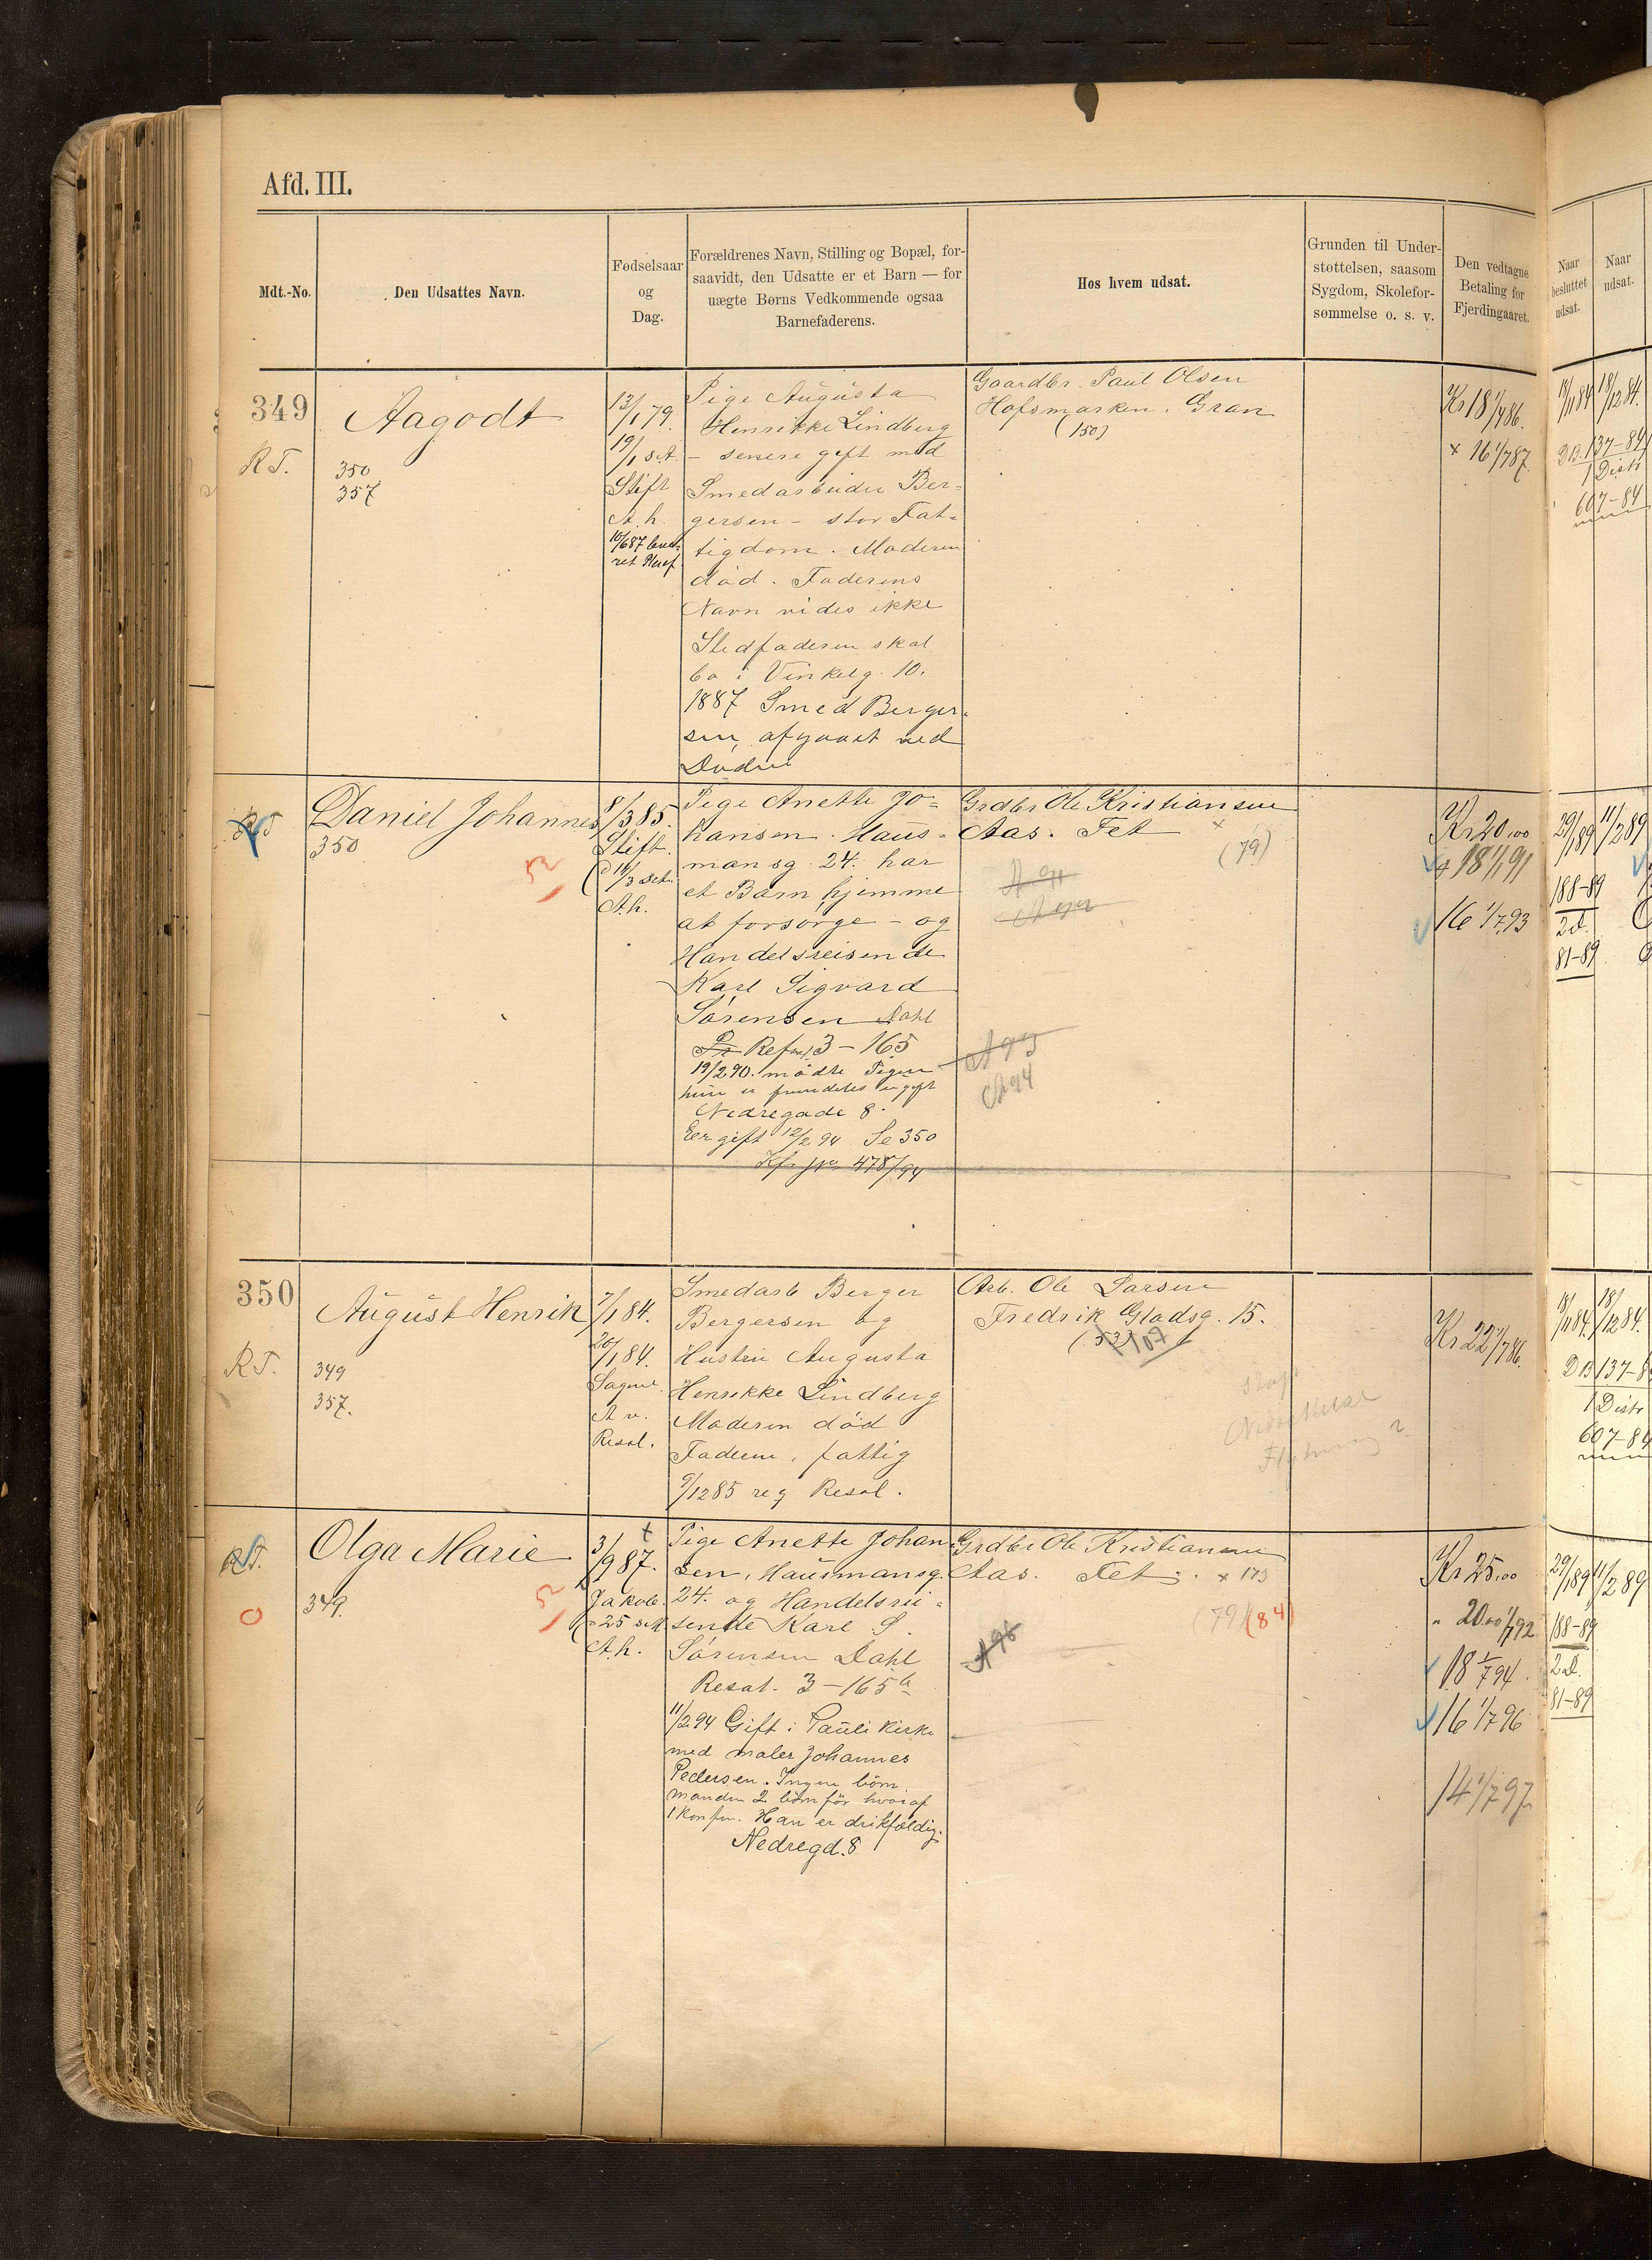 Afd. III.
Mdt.-No.
Den Udsattes Navn.
Fødselsaar
og
Dag.
Forældrenes Navn, Stilling og Bopæl, for-
saavidt, den Udsatte er et Barn — for
uægte Børns Vedkommende ogsaa
Barnefaderens.
Hos hvem udsat.
Grunden til Under-
støttelsen, saasom
Sygdom, Skolefor-
sømmelse o. s. v.
Den vedtagne
Betaling for
Fjerdingaaret.
Naar
besluttet
udsat.
Naar
udsat.
349
R T.
Aagodt
350
357
13/1 79.
19/1 s.A.
Stift
A. h.
Pige Augusta
Henrikke Lindberg
- senere gift med
Smedarbeider Ber=
gersen - stor Fat=
tigdom. Moderen
död. Faderens
Navn vides ikke
Stedfaderen skal
bo i Vinkelg. 10.
1887 Smed Berger-
sen, afgaaet ved
Döden
Gaardbr. Paul Olsen
Hofsmarken. Gran
(150)
Kr 18 1/7 86.
+ 16 1/7 87.
18/11 84
18/12 84.
DB. 137-84
1 Distr
607-84
RT
Daniel Johannes
350
52
8/3 85.
Stift.
A.h.
Pige Anette Jo=
hansen. Haus=
mansg. 24. har
et Barn hjemme
at forsörge - og
Handelsreisende
Karl Sigvard
Sörensen Dahl
Ref. 3 - 165
19/2 90. mödte Pigen
hun er fremdeles ugift
Nedregade 8.
Er gift 12/2 94 Se 350
478/94
Grdbr Ole Kristiansen
Aas. Fet
(79)
A 91
A 93
A 94
Kr 20,00
+ 18 1/1 91
16 1/7 93
29/1 89
11/2 89
188-89
2d.
81-89
350
R T.
August Henrik
349
357.
7/1 84.
20/1 84.
Sagne
A v.
Resol.
Smedarb Berger
Bergersen og
Hustru Augusta
Henrikke Lindberg
Moderen död
Faderen, fattig
9/12 85 reg Resol.
Arb. Ole Larsen
Fredrik Gladsg. 15.
(53) 107
Kr 22 1/7 86.
18/11 84.
18/12 84.
DB 137-8
1 Distr
607-84
RT.
Olga Marie
349.
52
3/9 87.
Jakob.
25 s.A.
A.h.
Pige Anette Johan
sen, Hausmansg.
24. og Handelsrei=
sende Karl S.
Sörensen Dahl
Resol. 3 - 165 b
11/2 94 Gift i Pauli Kirke
med maler Johannes
Pedersen. Ingen börn.
Manden 2 börn för hvoraf
1 konfm. Han er drikfældig.
Nedregd. 8
Grdbr Ole Kristiansen
Aas. Fet. x 173
(79) (84)
A 96
Kr 25,00
" 20,00 1/7 92
18 1/7 94.
16 1/7 96
14 1/7 97
29/1 89
11/2 89
188-89
2d.
81-89